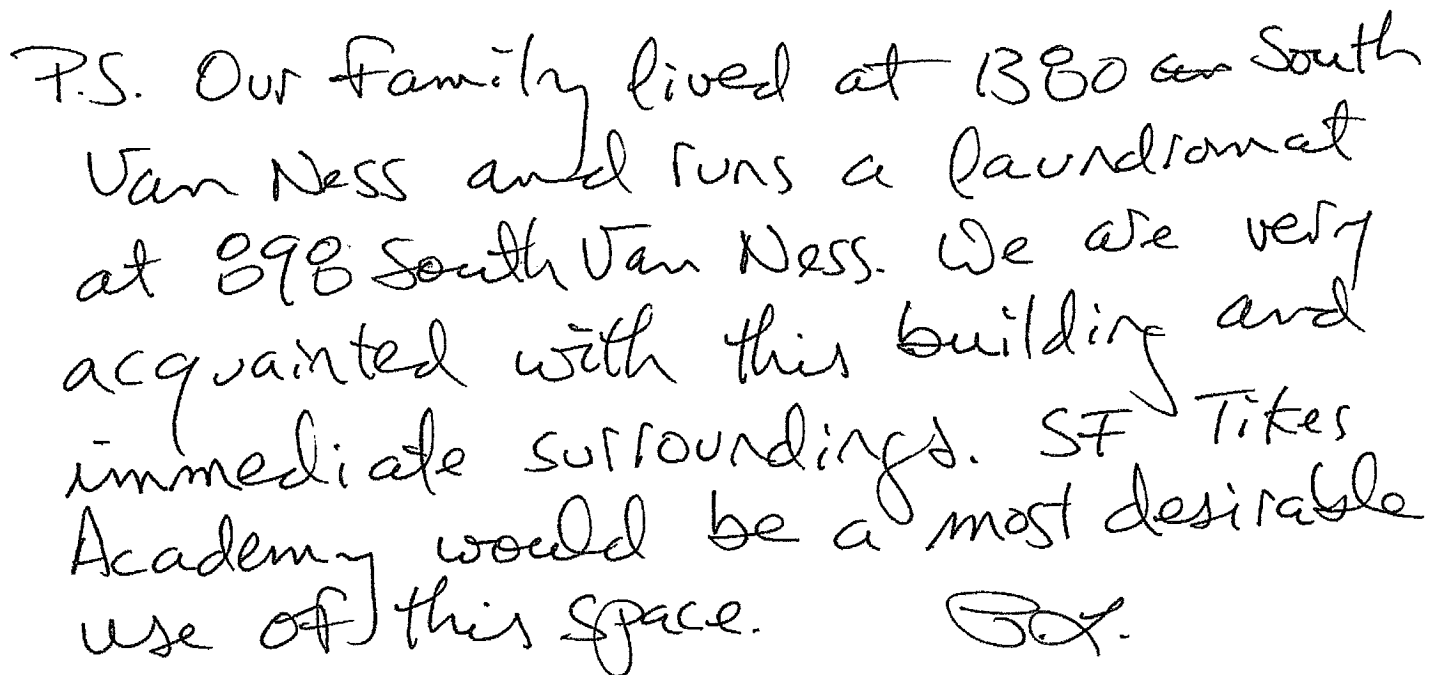 P.S. Our family lived at 1380 South
Van Ness and runs a laundromat
at 898 South Van Ness. We are very
acquainted with this building and
immediate surroundings. SF Tikes
Academy would be a most desirable
use of this space.